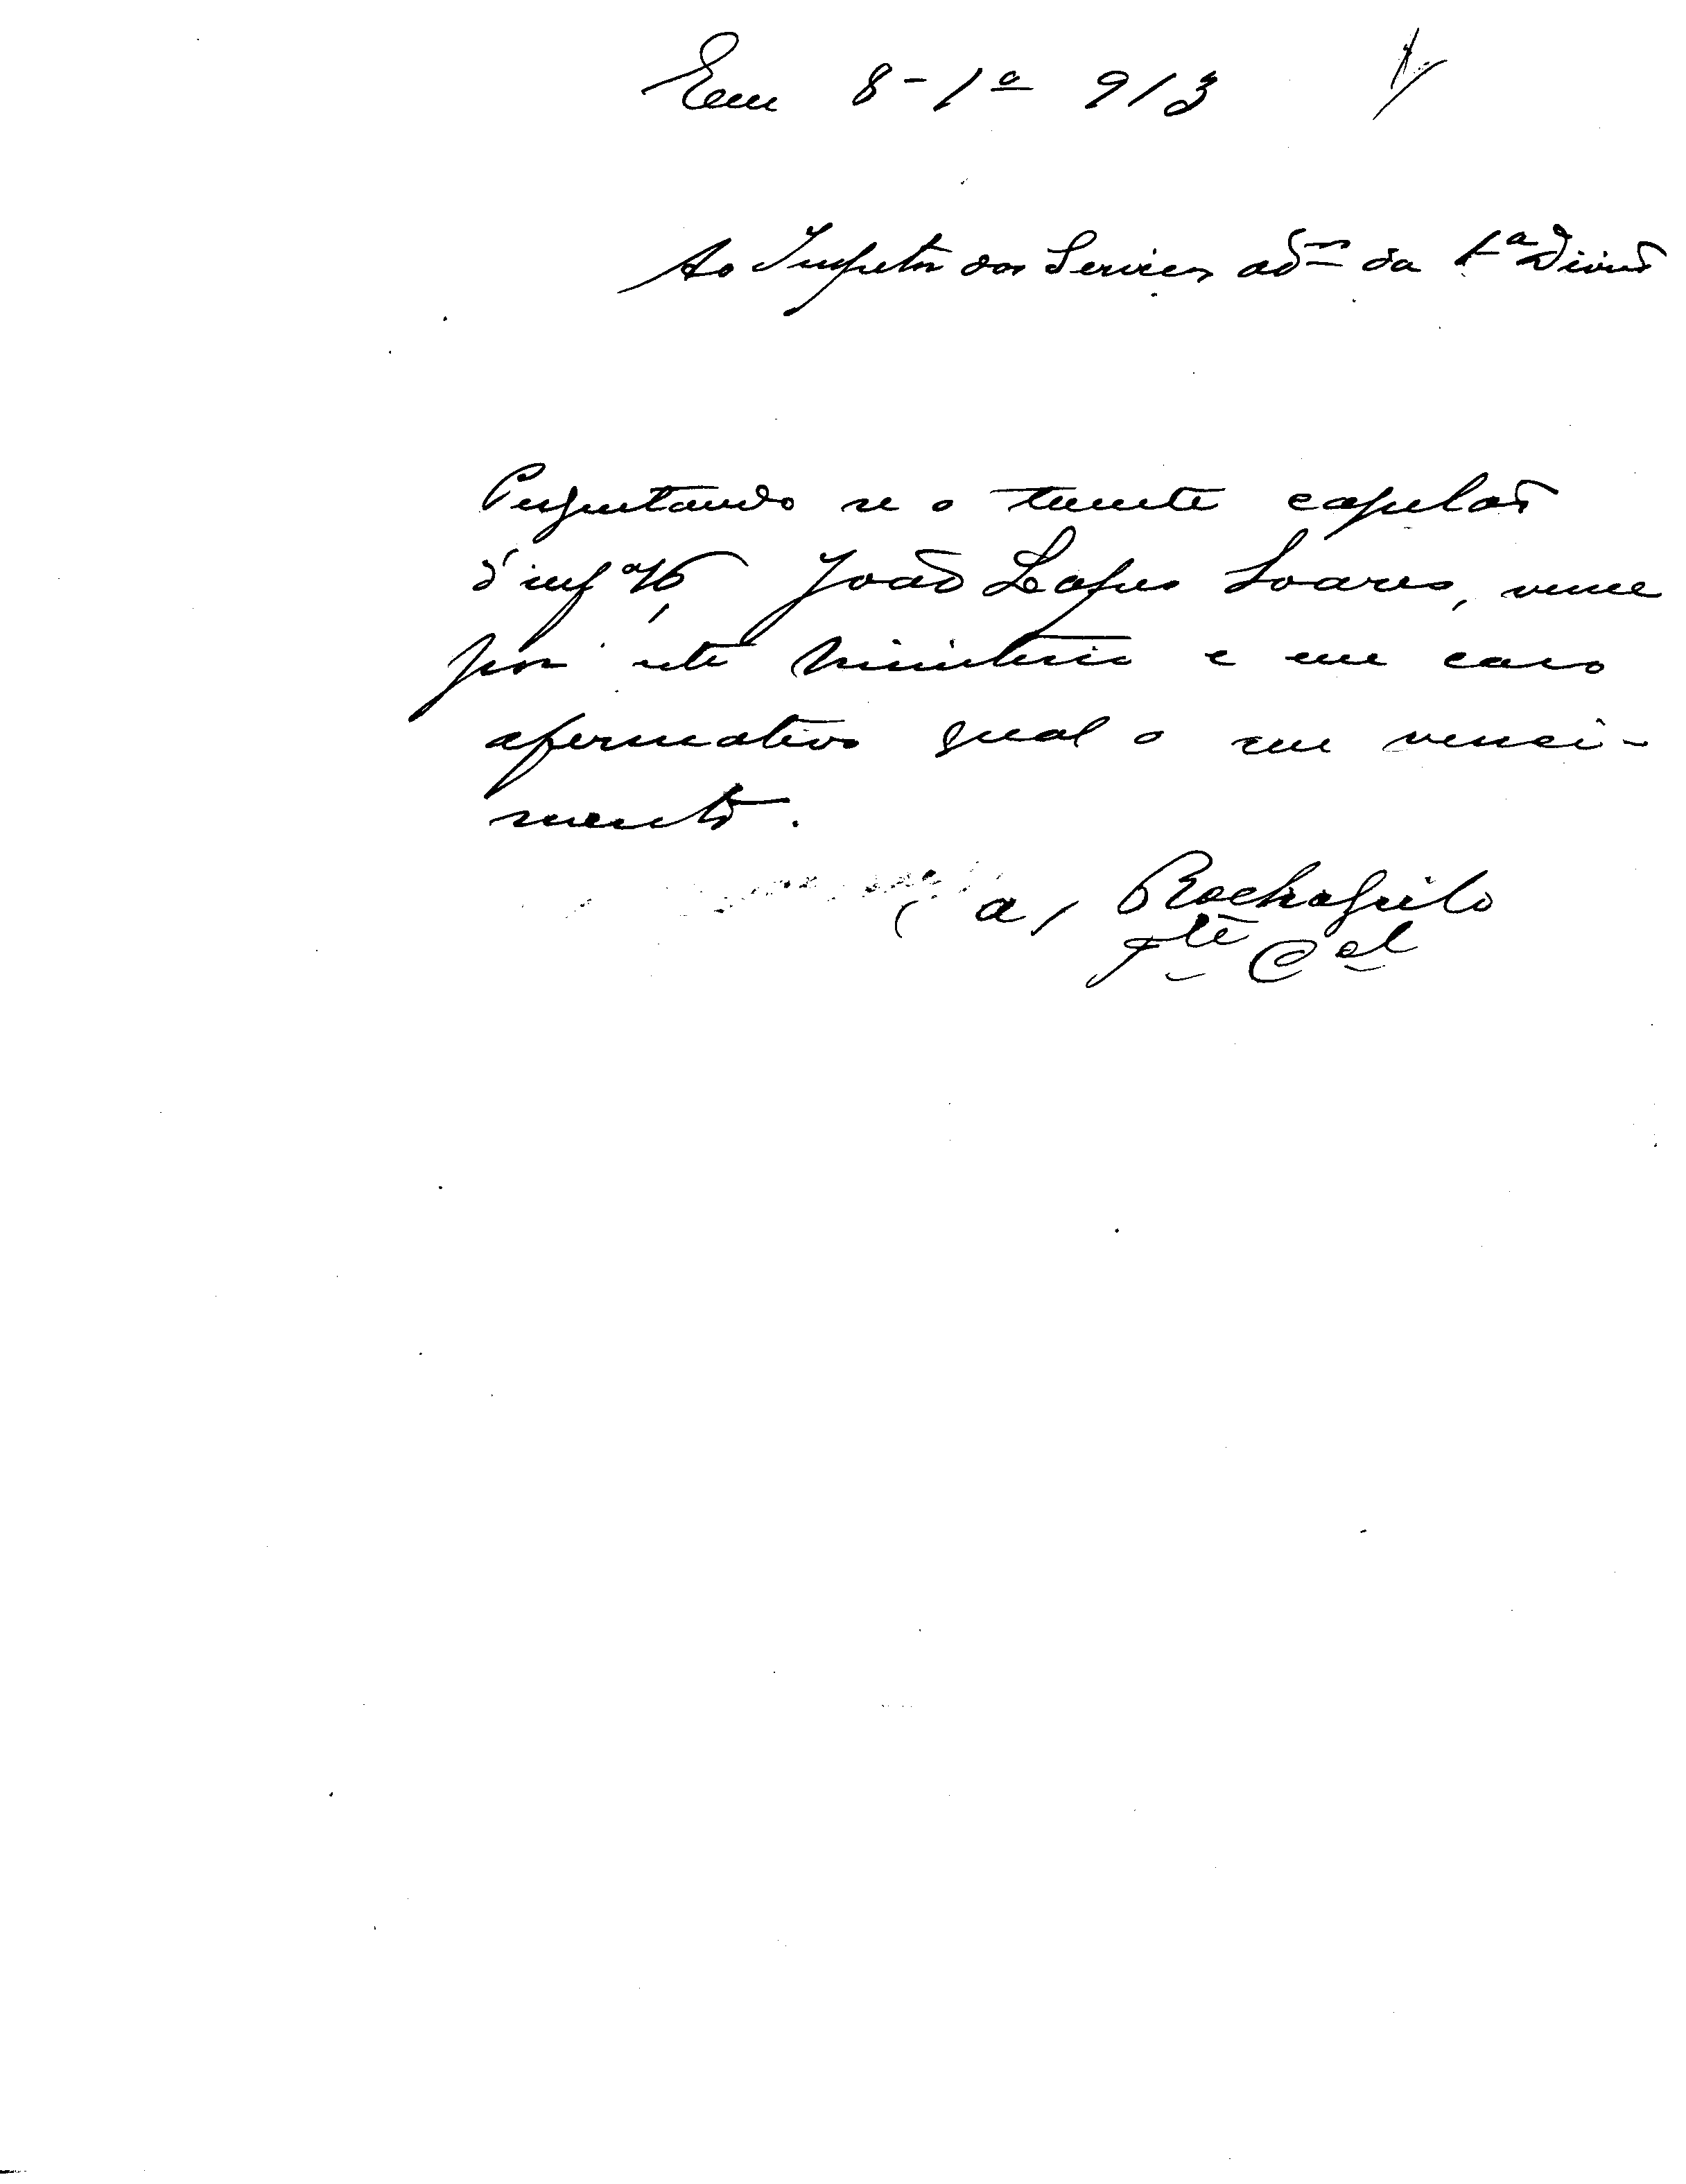 Em 8-1º 913
Ao Inspetor dos Serviços adm.os da 1ª Divisão
Perguntando se o tenente capelão
d'infª 16, João Lopes Soares, vence
por este Ministerio e em caso
afirmativo qual o seu venci-
mento.
(a)
Tte Cel